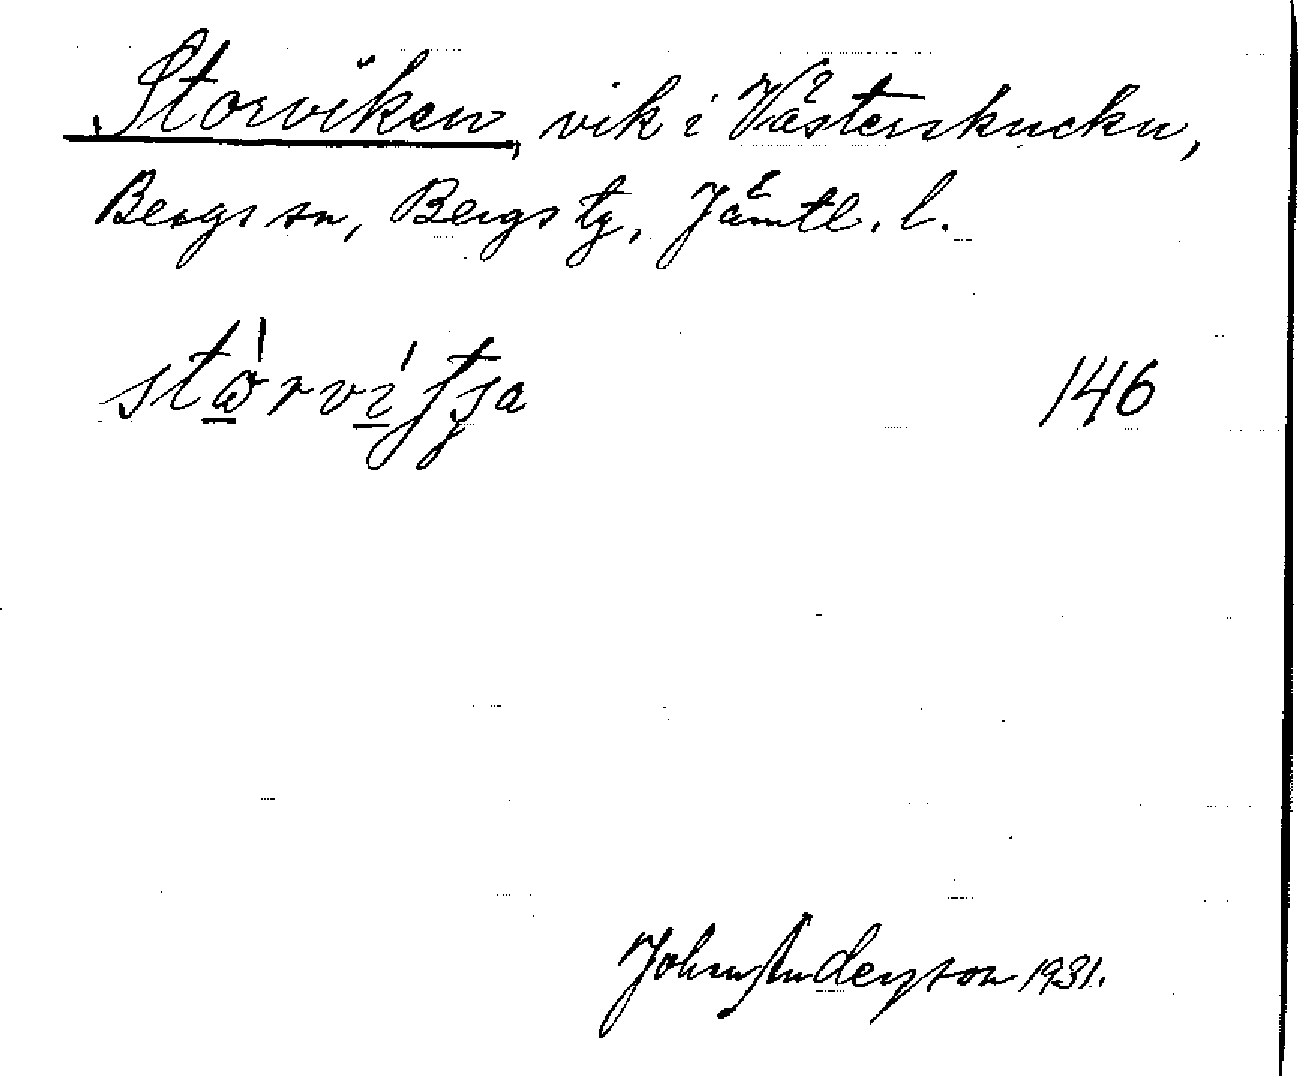 Storviken, vik i Västerskucku,
Bergs sn, Bergs tg, Jämtl. l.
stὼ̲rví̲ʃtja 146
John Anderson 1931.